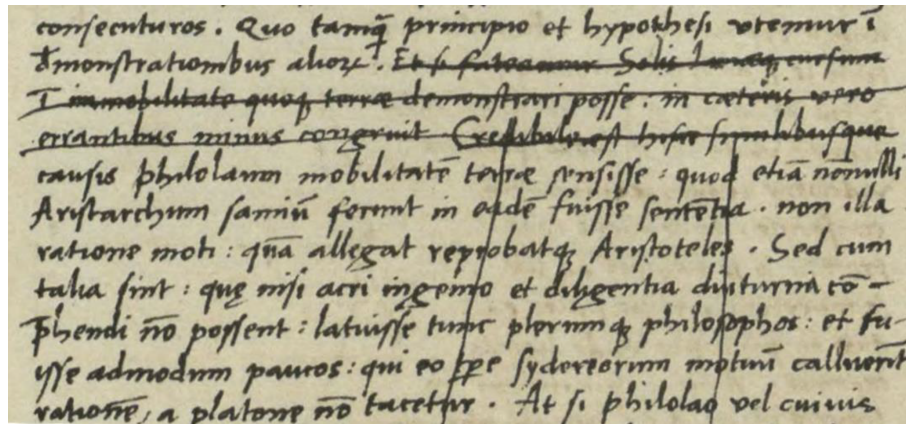 consecuturos . Quo tamq̃ principio et hypothesi vtemur ĩ
đmonstrationibus alioꝝ . Et si fateamur Solis Lunæq cursum
ĩ immobilitate quoq terræ demonstrari posse . in cæteris vero
errantibus minus congruit Credibile est hisce similibusque
causis philolaum mobilitatẽ terræ sensisse : quod etiã nõnulli
Aristarchum samiũ ferunt in eadẽ fuisse sententia . non illa
ratione moti : quã allegat reprobatq Aristoteles . Sed cum
talia sint : quę nisi acri ingenio et diligentia diuturna cõ-
p̃hendi nõ possent : latuisse tunc plerumq philosophos : et fu-
isse admodum paucos : qui eo tp̃e sydereorum motuũ calluerĩt
rationẽ, a platone nõ tacetur . At si philolao vel cuiuis